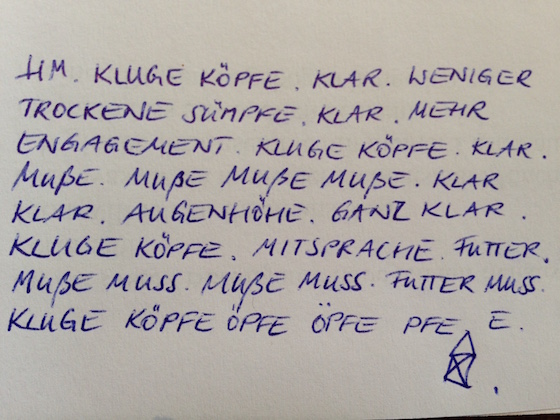 HM. KLUGE KÖPFE. KLAR. WENIGER
TROCKENE SÜMPFE. KLAR. MEHR
ENGAGEMENT. KLUGE KÖPFE. KLAR.
MUßE. MUßE MUßE MUßE. KLAR
KLAR. AUGENHÖHE. GANZ KLAR.
KLUGE KÖPFE. MITSPRACHE. FUTTER.
MUßE MUSS. MUßE MUSS. FUTTER MUSS.
KLUGE KÖPFE ÖPFE ÖPFE PFE, E.